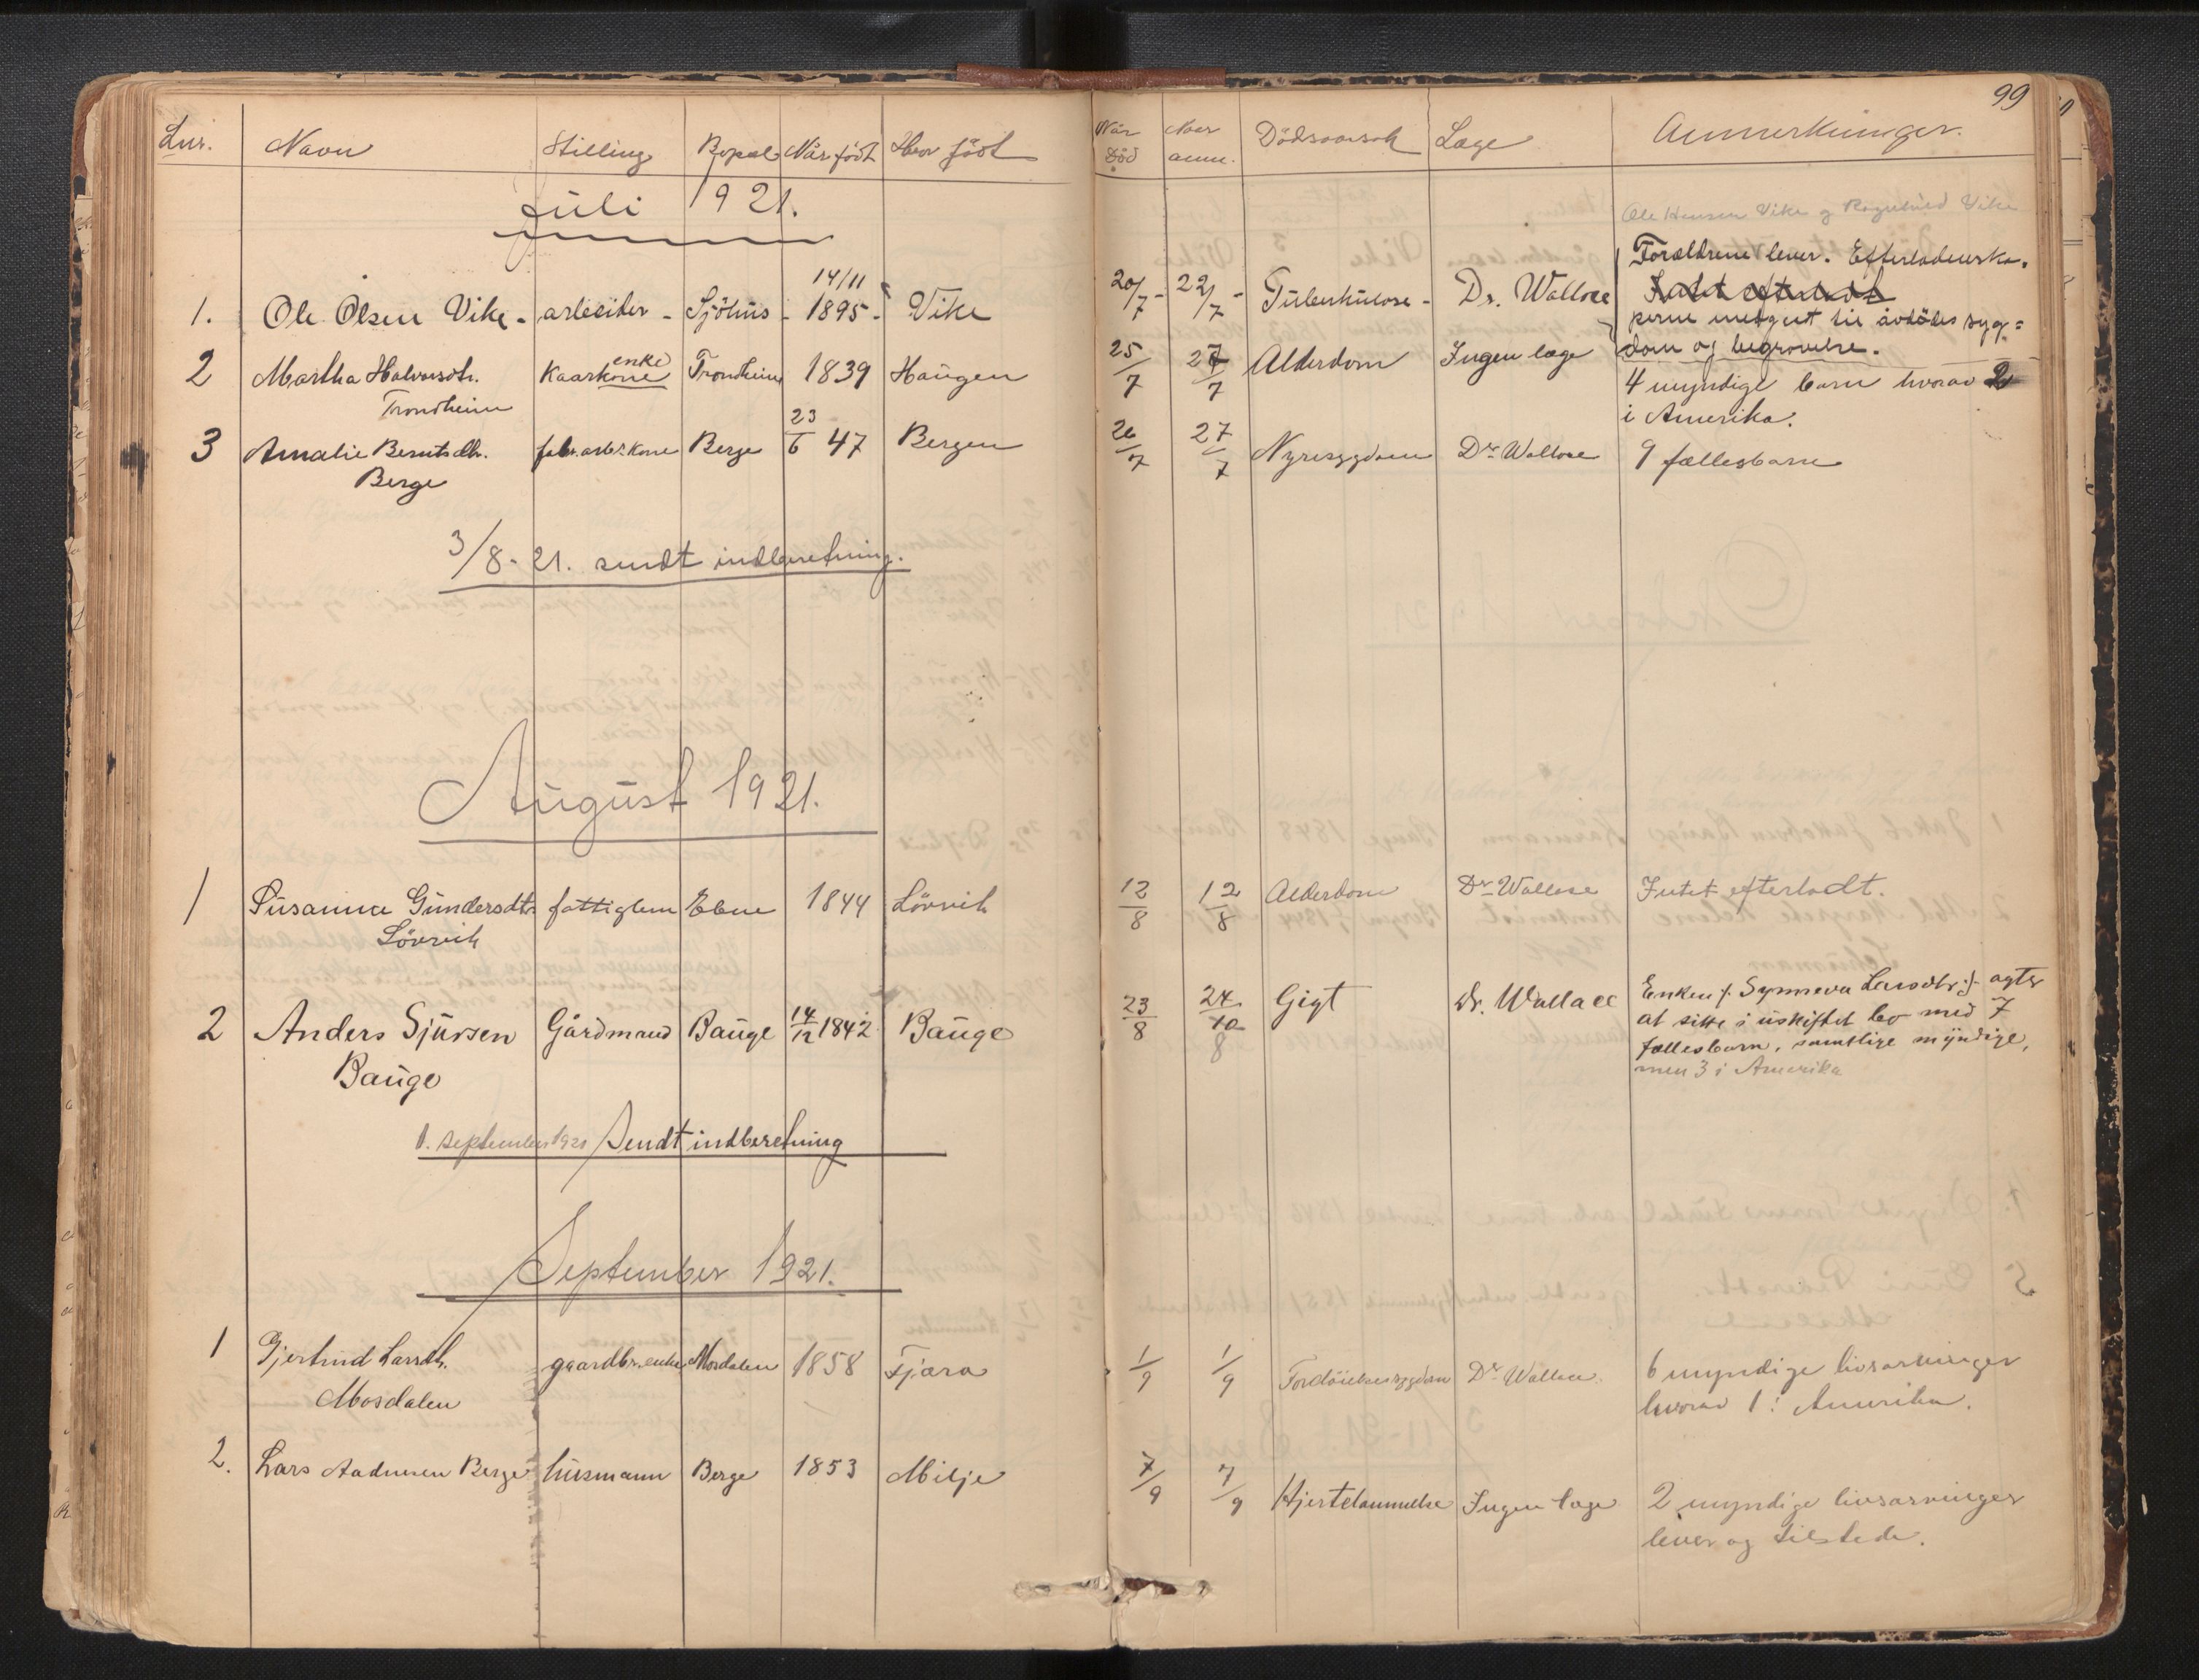 99
Lnr. Navn Stilling Bopæl Når født Hvor född Når död Naar anm. Dödsaarsak Læge Anmerkninger.
Juli 1921.
Ole Hansen Vike og Ragnhild Vike
1. Ole Olsen Vike - arbeider - Sjöhus - 14/11 1895 - Vike 20/7 - 22/7 - Tuberkulose - Dr. Wallace Forældrene lever. Efterladenska-
Intet efterladt
perne medgaat til avdödes syg=
dom og begravelse.
2 Martha Halvorsdtr. Kaarkone enke Trondheim 1839 Haugen 25/7 27/7 Alderdom Ingen læge 4 myndige barn hvorav 2
Trondheim i Amerika.
3 Amalie Berntsdtr. fabr.arb.s kone Berge 23/6 47 Bergen 26/7 27/7 Nyresygdom Dr Wallace 9 fællesbarn
Berge
3/8-21. sendt indberetning.
August 1921.
1 Susanna Gundersdtr fattiglem Ebne 1844 Lövvik 12/8 12/8 Alderdom Dr Wallace Intet efterladt.
Lövvik
2 Anders Sjursen Gårdmand Bauge 14/12 1842 Bauge 23/8 24/8 Gigt Dr. Wallace Enken /: Synneva Larsdtr :/ agter
Bauge at sitte i uskiftet bo med 7
fællesbarn, samtlige myndige,
men 3 i Amerika
1. september 1921 Sendt indberetning
September 1921.
1 Gjertrud Larsdtr. gaardbr. enke Mosdalen 1858 Tjæra 1/9 1/9 Fordöielsessygdom Dr Wallace. 6 myndige livsarvinger
Mosdalen hvorav 1 i Amerika.
2. Lars Aadnesen Berge husmann Berge 1853 Milje 7/9 7/9 Hjertelammelse Ingen læge 2 myndige livsarvinger
lever og tilstede.